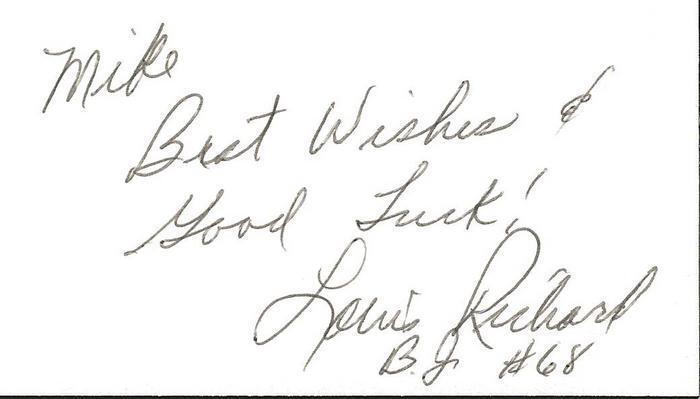 Mike
Best Wishes &
Good Luck!
Louis Richard
B.J. #68